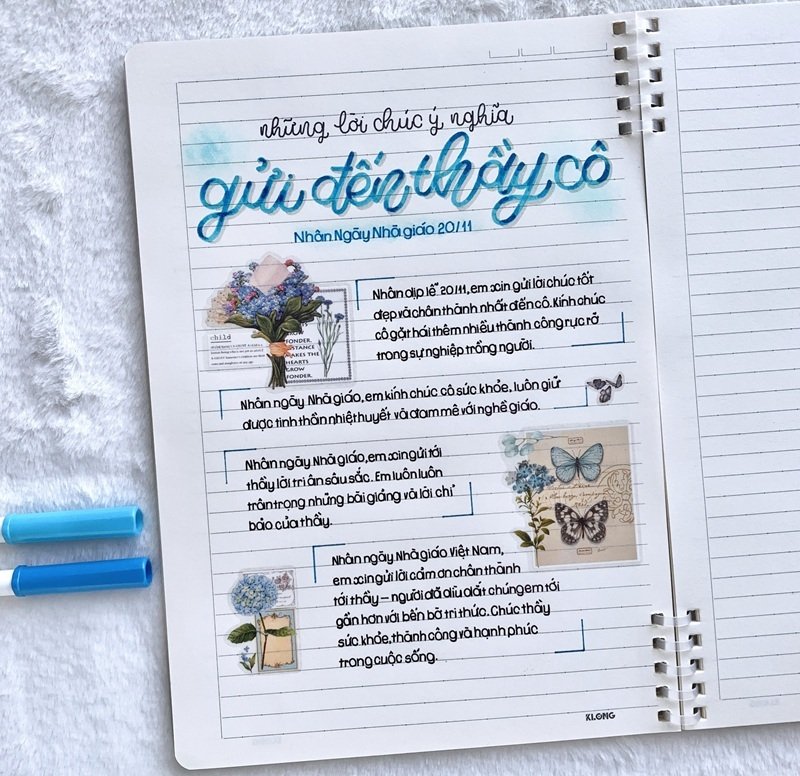 những lời chúc ý nghĩa
gửi đến thầy cô
Nhân Ngày Nhà giáo 20/11
Nhân dịp lễ 20/11, em xin gửi lời chúc tốt
đẹp và chân thành nhất đến cô. Kính chúc
cô gặt hái thêm nhiều thành công rực rỡ
trong sự nghiệp trồng người.
child
FONDER.
DISTANCE
MAKES THE
HEARTS
GROW
FONDER.
Nhân ngày Nhà giáo, em kính chúc cô sức khỏe, luôn giữ
được tinh thần nhiệt huyết và đam mê với nghề giáo.
Nhân ngày Nhà giáo, em xin gửi tới
thầy lời tri ân sâu sắc. Em luôn luôn
trân trọng những bài giảng và lời chỉ
bảo của thầy.
Nhân ngày Nhà giáo Việt Nam,
em xin gửi lời cảm ơn chân thành
tới thầy – người đã dìu dắt chúng em tới
gần hơn với bến bờ tri thức. Chúc thầy
sức khỏe, thành công và hạnh phúc
trong cuộc sống.
KLONG